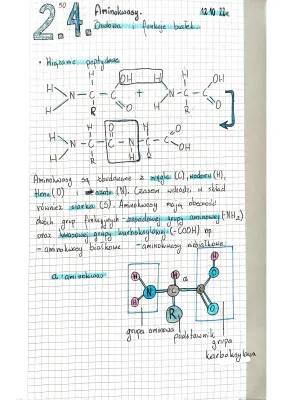 50
2.4.
Aminokwasy.
12.10.22r.
Budowa i funkcje białek.
• Wiązanie peptydowe
H H OH H OH
N - C - C + N - C - C
H R O H R O
H H O H H O
N - C - C - N - C - C
H R R OH
Aminokwasy są zbudowane z węgla (C), wodoru (H),
tlenu (O) i azotu (N). Czasem wchodzi w skład
również siarka (S). Aminokwasy mają obecność
dwóch grup funkcyjnych - zasadowej grupy aminowej (-NH₂)
oraz kwasowej grupy karboksylowej (-COOH) np.
- aminokwasy białkowe - aminokwasy niebiałkowe
α aminokwas
H H α O H
N C C
H R O
grupa aminowa
podstawnik
grupa
karboksylowa